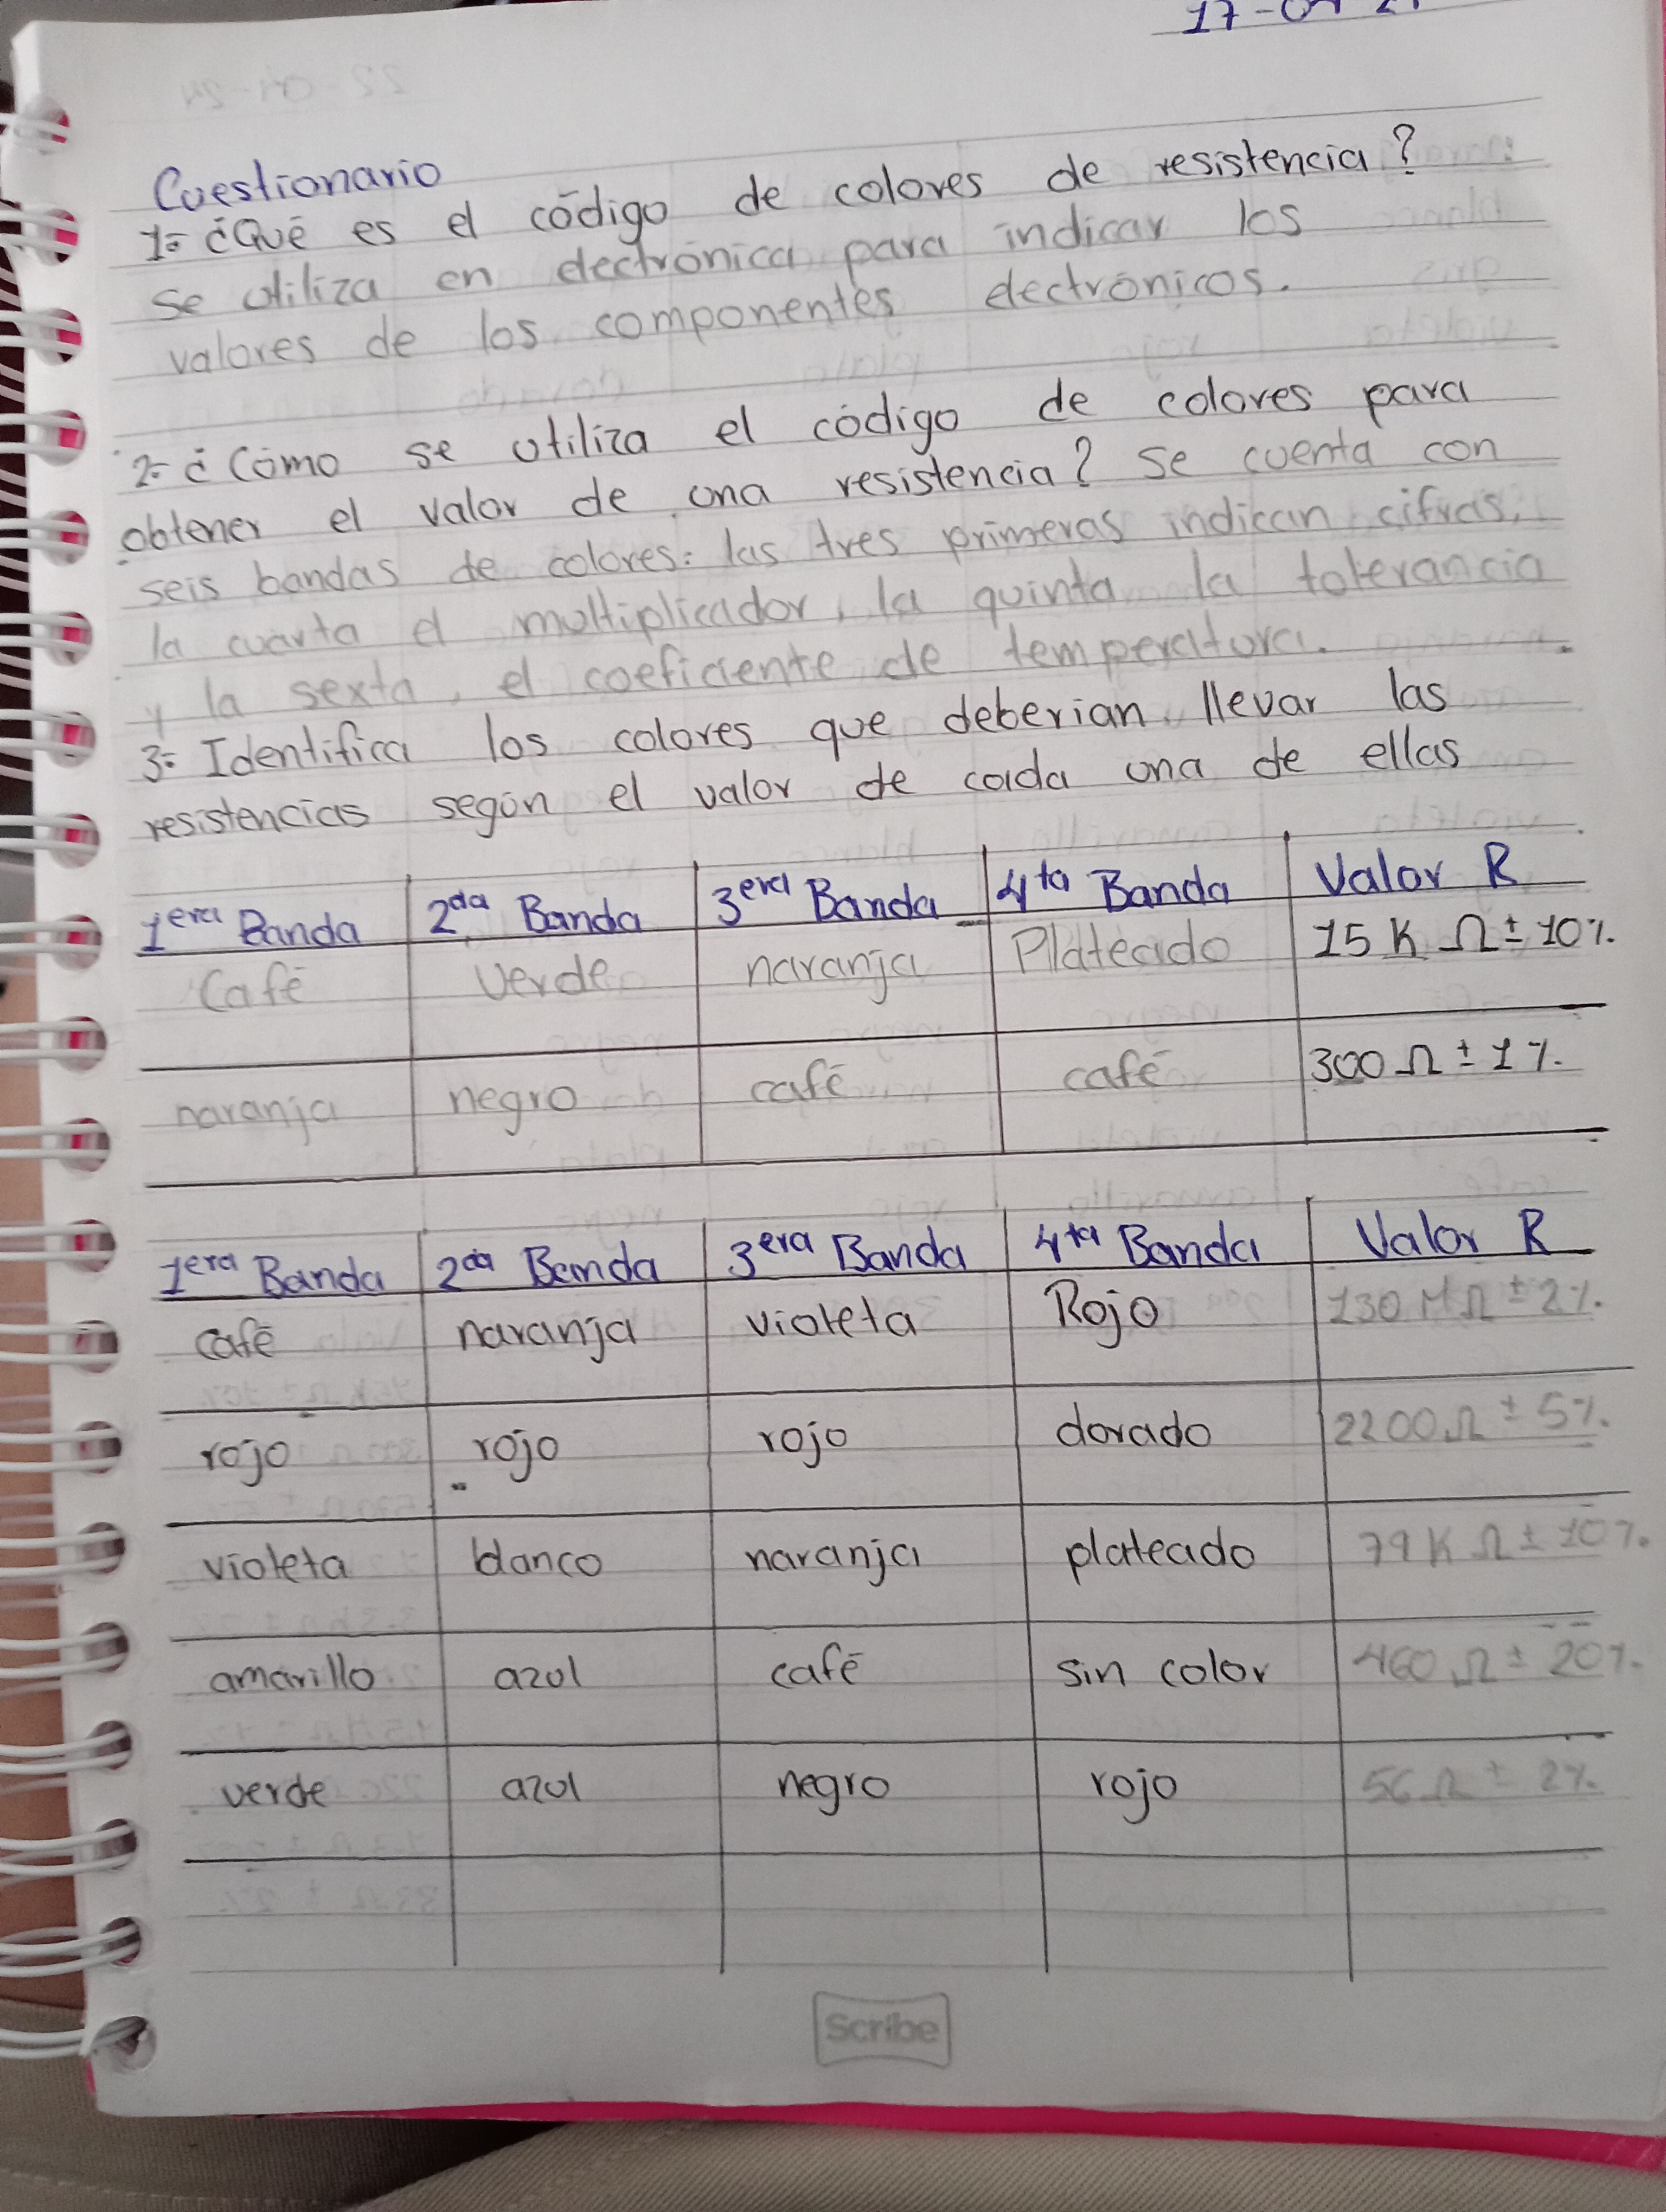 Cuestionario
1= ¿Qué es el código de colores de resistencia?
se utiliza en electrónica para indicar los
valores de los componentes electrónicos.
2= ¿Cómo se utiliza el código de colores para
obtener el valor de una resistencia? Se cuenta con
seis bandas de colores: las tres primeras indican cifras,
la cuarta el multiplicador, la quinta la tolerancia
y la sexta, el coeficiente de temperatura.
3= Identifica los colores que deberian llevar las
resistencias según el valor de cada una de ellas
1era Banda 2da Banda 3era Banda 4ta Banda Valor R
Café Verde naranja Plateado 15 K Ω ± 10 %
naranja negro café café 300 Ω ± 1 %
1era Banda 2da Banda 3era Banda 4ta Banda Valor R
café naranja violeta Rojo 130 M Ω ± 2 %
rojo rojo rojo dorado 2200 Ω ± 5 %
violeta blanco naranja plateado 79 K Ω ± 10 %
amarillo azul café sin color 460 Ω ± 20 %
verde azul negro rojo 56 Ω ± 2 %
Scribe